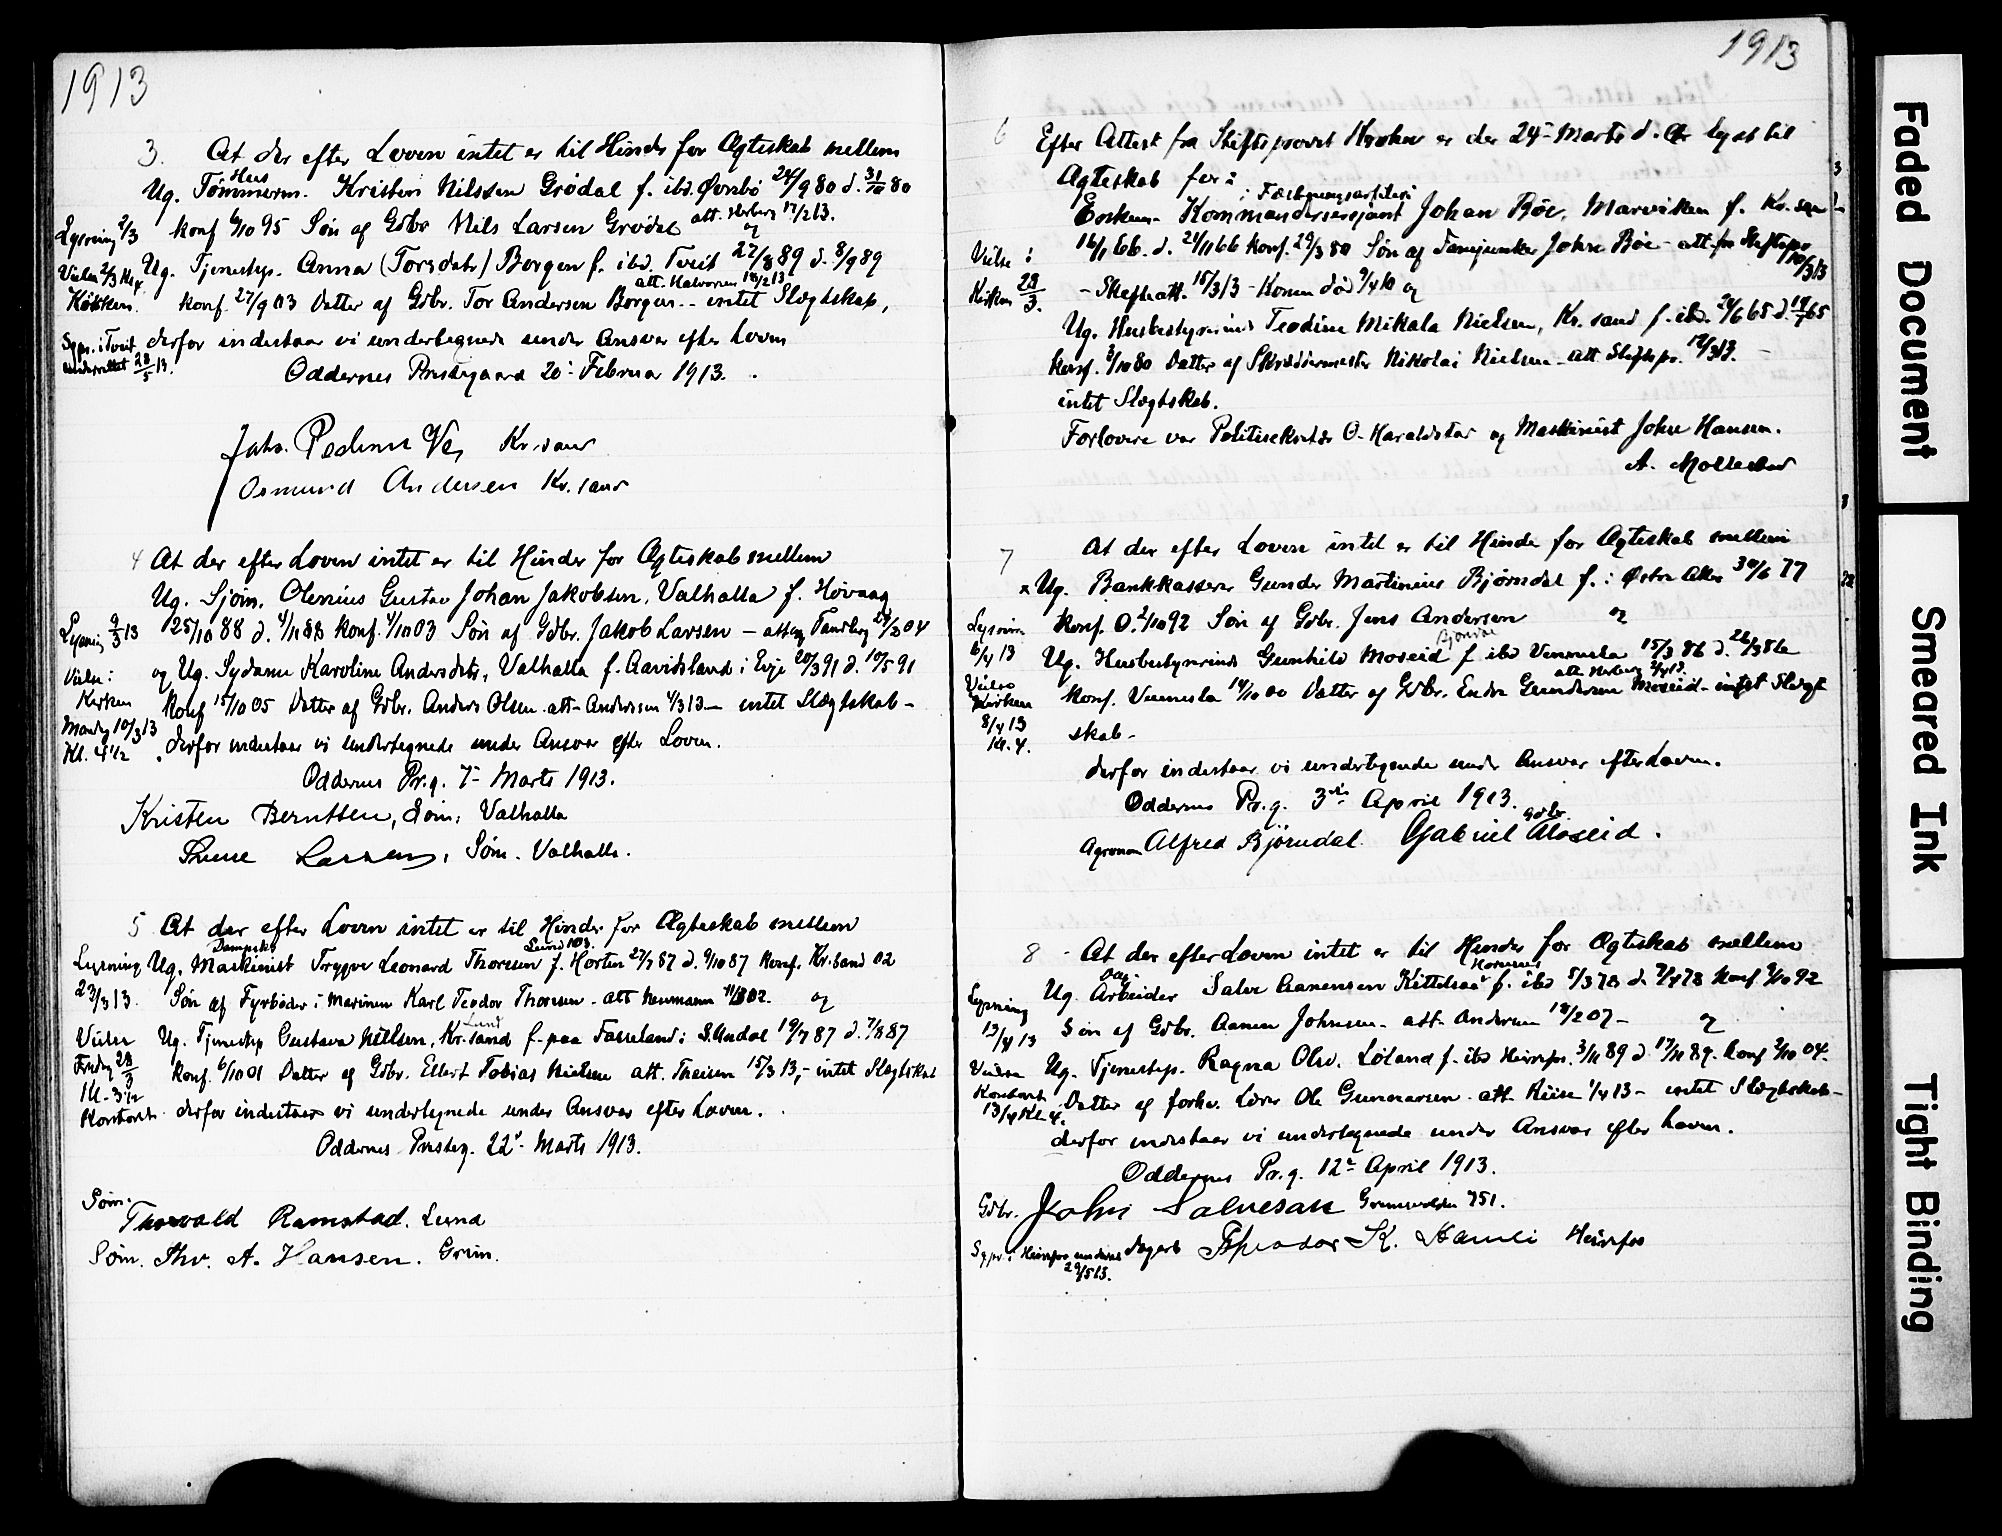 1913
3. At der efter Loven intet er til Hinder for Ægteskab mellem
Hus
Ug. Tømmerm. Kristen Nilssen Grødal f. ibd. Øvrebø 24/9 80 d. 31/10 80
Lysning 2/3 konf 6/10 95 Søn af Gdbr Nils Larsen Grødal att. Herberg 17/2 13. og
Ug. Tjenestep. Anna (Torsdatr) Borgen f. ibd. Tveit 22/8 89 d. 8/9 89
att. Halvorsen 18/2 13
Køkken. konf. 27/9 03 Datter af Gdbr. Tor Andersen Borgen - intet Slægtskap,
Sgpr. i Tveit derfor indestaar vi undertegnede under Ansvar efter Loven
underrettet 28/5 13. Oddernes Prestegaard 20: Februar 1913.
Johs. Pedersen Kr.sand
Osmund Andersen Kr.sand
4 At der efter Loven intet er til Hinder for Ægteskab mellem
Ug. Sjøm. Olenius Gustav Johan Jakobsen, Valhalla f. Høvaag
Lysning 9/3 13 25/10 88 d. 4/11 88 konf. 4/10 03 Søn af Gdbr. Jakob Larsen - attest Tandberg 04
Vielse i og Ug. Sydanne Karoline Andersdtr, Valhalla f. Aavidsland i Evje 20/3 91 d. 10/5 91
Kirken konf 15/10 05 Datter af Gdbr. Anders Olsen att- Anderssen 4/3 13 - intet Slægtskab -
Mandag 10/3 13
Kl. 4 1/2 derfor indestaar vi undertegnede under Ansvar efter Loven.
Oddernes Pr.g. 7- Marts 1913.
Kristen Berntsen, Søm. Valhalla
Larsen, Søm. Valhalla.
5 At der efter Loven intet er til Hinder for Ægteskab mellem
Dampsk. Lund 103.
Lysning Ug. Maskinist Trygve Leonard Thorsen f. Horten 27/7 87 d. 9/10 87 konf. Kr.sand 02
23/3 13. Søn af Fyrbøder i Marinen Karl Teodor Thorsen - att Neumann 11/3 02. og
Lund
Vielse Ug. Tjenestep Gustava Nilsen, Kr.sand f. paa Fasseland i S.Undal 19/7 87 d. 7/8 87
Fredag 28/3 konf. 6/10 01 Datter af Gdbr. Ellert Tobias Nielsen att. Theisen 15/3 13, - intet Slægtskab
Kl. 3 1/2
Kontoret derfor indestaar vi undertegnede under Ansvar efter Loven.
Oddernes Presteg. 22. Marts 1913.
Søm.
Thorvald Ramstad. Lund
Søm. Thv. A. Hansen. Grim.
1913
6 Efter Attest fra Stiftsprovst Krohn er der 24- Marts d. Aar lyst til
Ægteskab for:
i Fæstningsartilleri
Enkem. Kommandersersjant Johan Bøe, Marviken f. Kr.san
Vielse i 16/1 66. d. 21/1 66 konf. 29/3 80 Søn af Fanejunker Johan Bøe - att. fra Stiftspr. 10/3 13
Kirken 28/3. - Skifteatt. 15/3 13 - Konen død 9/4 10 og
Ug. Husbestyrerinde Teodine Mikala Nielsen, Kr.sand f. ibd. 24/6 65 d. 19/7 65
konf. 3/10 80 Datter af Skræddermester Nikolai Nielsen - att Stiftspr. 12/3 13. -
intet Slægtskab.
Forlovere var Politisekretær O. Haraldstad og Maskinist John Hansen.
A. Mollestad
7 At der efter Loven intet er til Hinder for Ægteskab mellem
x Ug. Bankkasserer Gunder Martinius Bjørndal f. i Østre Aker 30/6 77
Lysning konf. O. 2/10 92 Søn af Gdbr. Jens Andersen og
Bjøndal
6/4 13 Ug. Husbestyrerinde Gunhild Moseid f ibd Vennesla 15/3 86 d. 22/3 86
att. Herberg 2/4 13.
Vielse konf. Vennesla 14/10 00 Datter af Gdbr. Endre Gundersen Moseid - intet Slægt
Kirken
8/4 13 skab -
Kl. 4.
derfor indestaar vi undertegnede under Ansvar efter Loven.
Oddernes Pr.g. 3die April 1913.
Gdbr.
Agronom Alfred Bjørndal. Gabriel Moseid.
8 - At der efter Loven intet er til Hinder for Ægteskab mellem
Hornnes
Ug. Arbeider Salve Aanensen Kittelsaa f. ibd 5/3 78 d. 7/4 78 konf 2/10 92
Lysning
13/4 13 Søn af Gdbr. Aanen Johnsen - att- Andersen 18/2 07 - og
Vielse Ug. Tjenestep. Ragna Olsd. Løland f. ibd Heirefos. 3/11 89 d 17/11 89. konf 2/10 04.
Kontoret Datter af forhv. Lærer Ole Gunnarsen att Riise 1/4 13 - intet Slægtskab -
13/4 Kl. 4.
derfor indestaar vi undertegnede under Ansvar efter Loven.
Oddernes Pr.g. 12- April 1913.
Gdbr. John Salvesen 751.
Sgpr. i Heirefos underrettet Theodor K. Hamli Heirefos
29/5 13.
Faded Document
Smeared Ink
Tight Binding